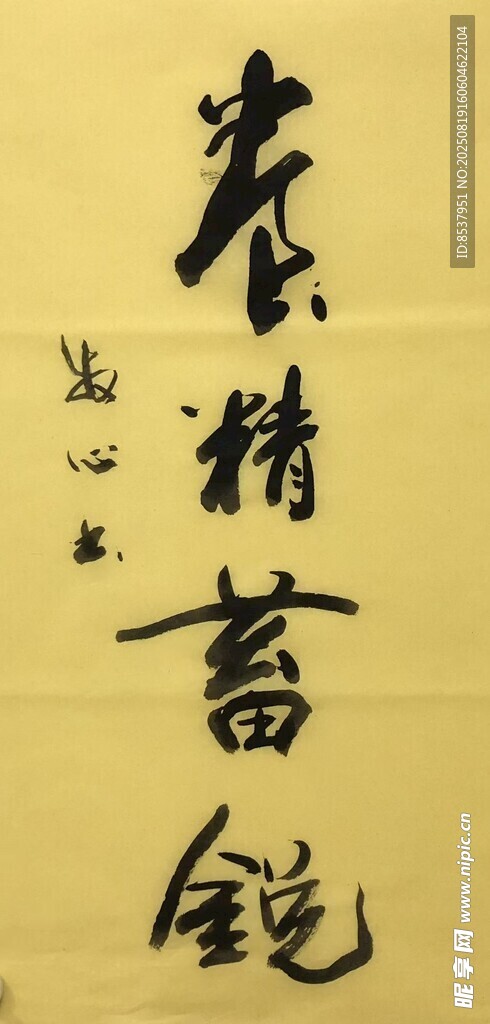 養精蓄銳
牧心书
ID:8537951 NO:20250819160604622104
昵享网 www.nipic.cn